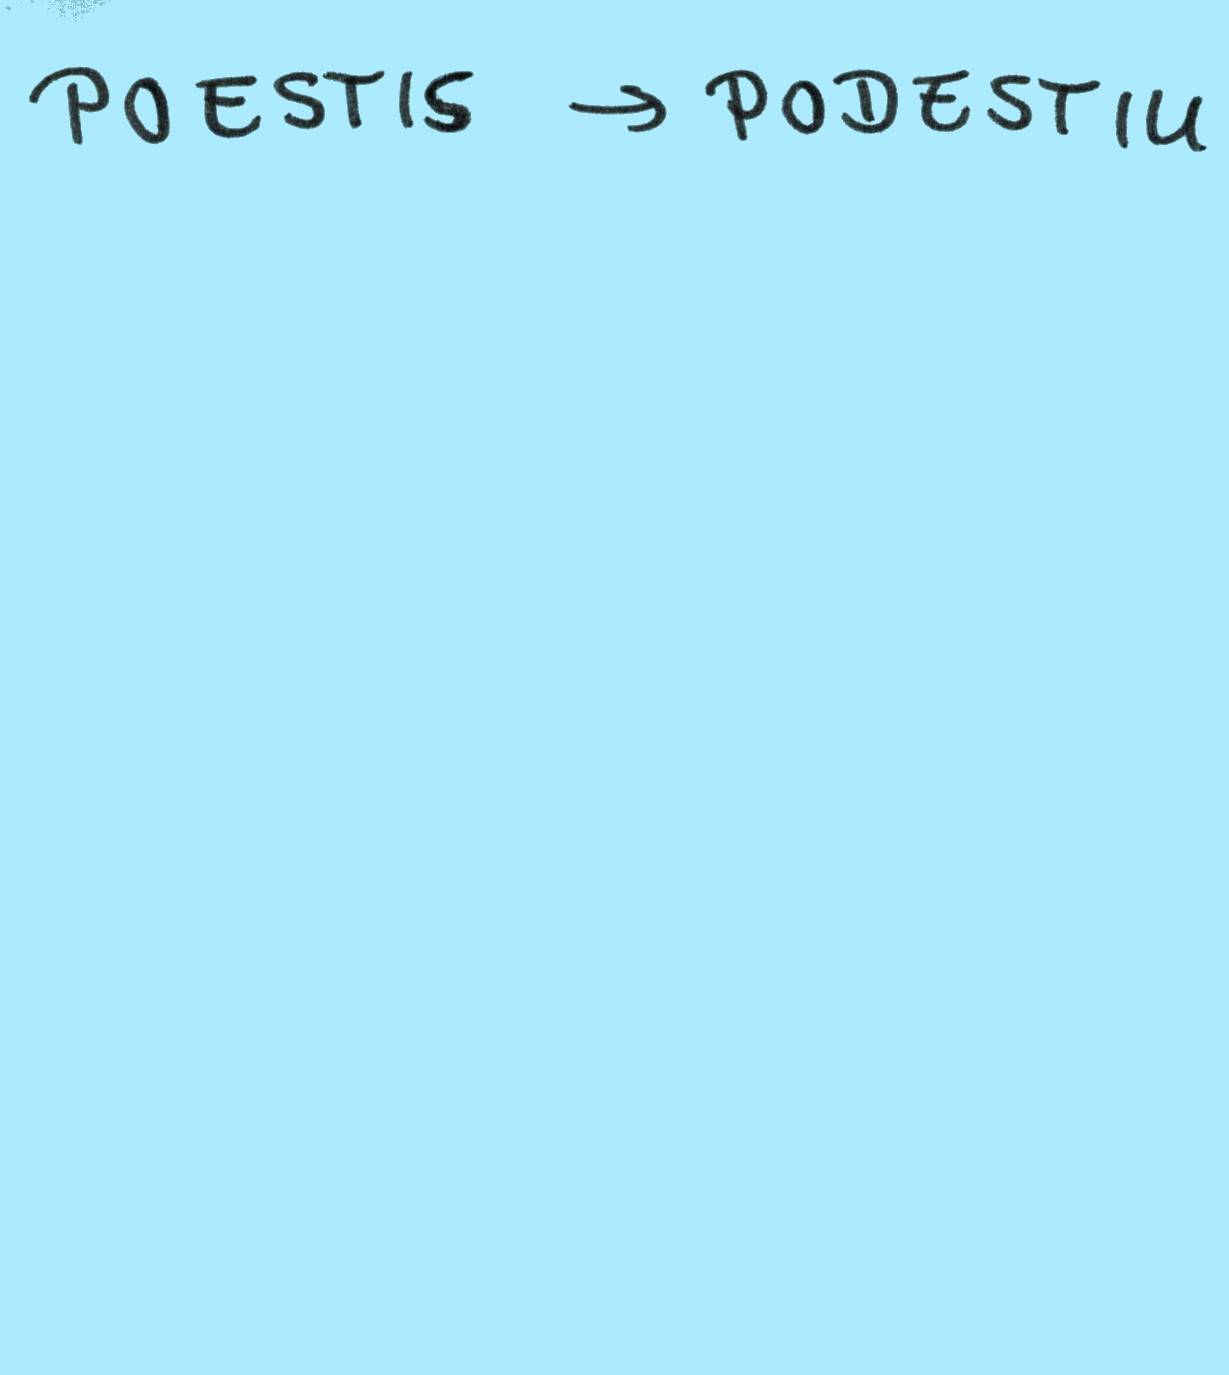 POESTIS → PODESTIU